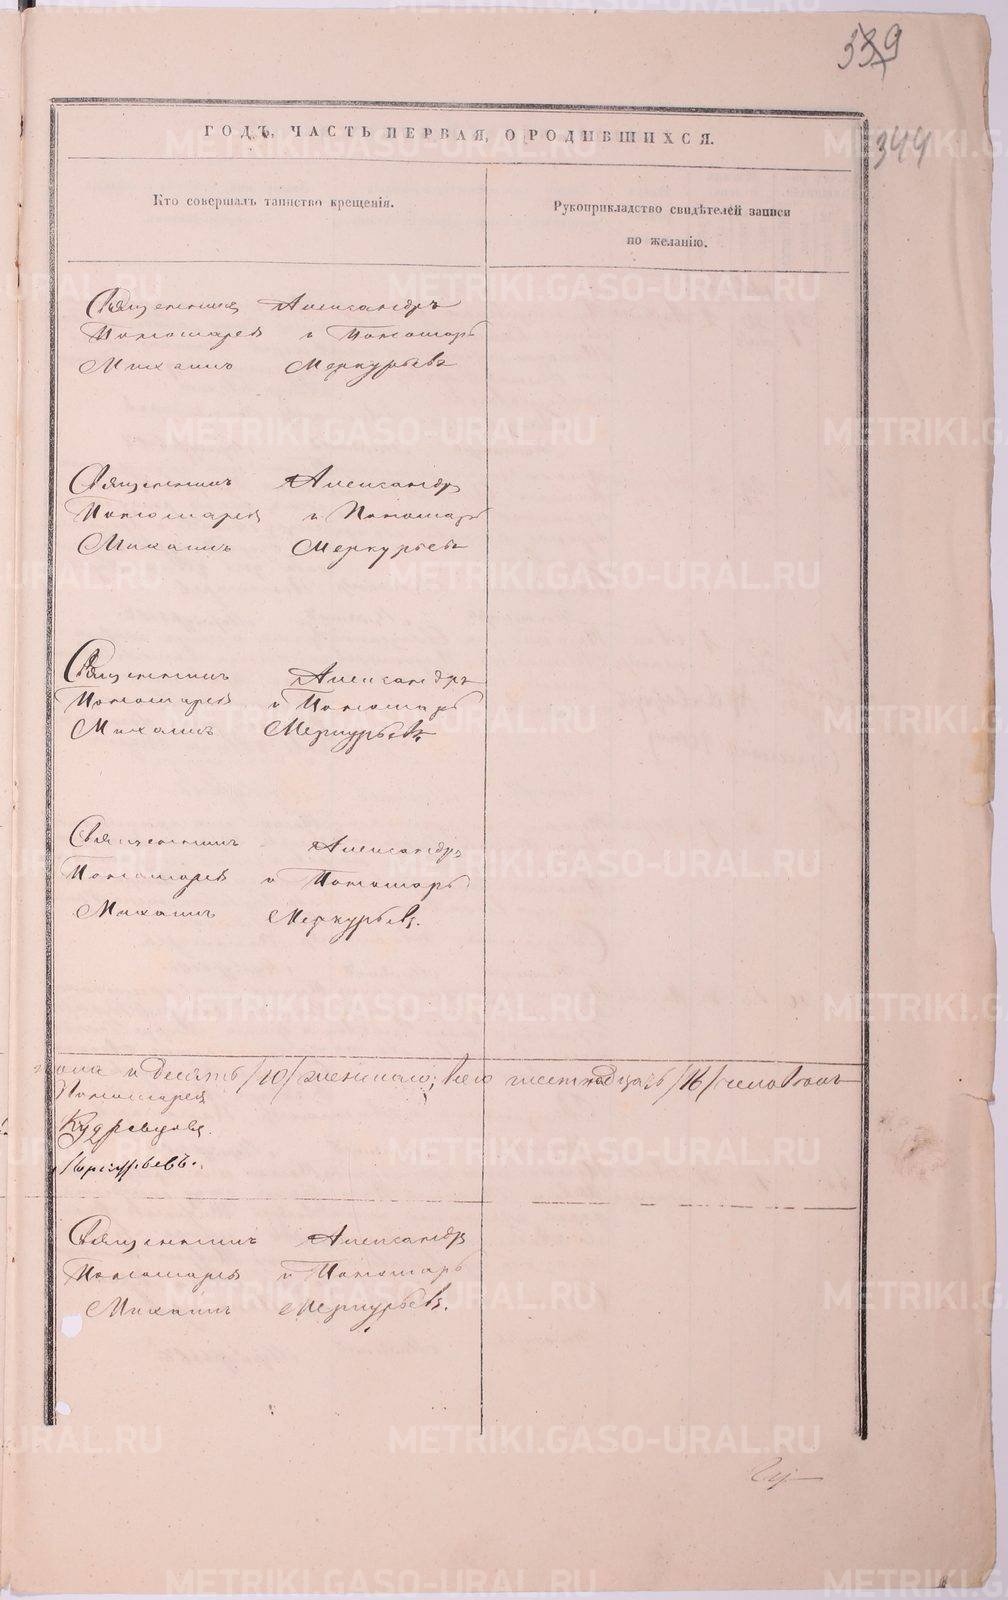 339
344
ГОДЪ, ЧАСТЬ ПЕРВАЯ, О РОДИВШИХСЯ.
Кто совершалъ таинство крещенія.
Рукоприкладство свидѣтелей записи
по желанію.
Священникъ Александръ
Пономаревъ и Пономарь
Михаилъ Меркурьевъ
Священникъ Александръ
Пономаревъ и Пономарь
Михаилъ Меркурьевъ
Священникъ Александръ
Пономаревъ и Пономарь
Михаилъ Меркурьевъ
Священникъ Александръ
Пономаревъ и Пономарь
Михаилъ Меркурьевъ.
пола и десять /10/ женскаго, всего шестнадцать /16/ человѣкъ
Пономаревъ
Кудрявцовъ.
Меркурьевъ.
Священникъ Александръ
Пономаревъ и Пономарь
Михаилъ Меркурьевъ.
METRIKI.GASO-URAL.RU